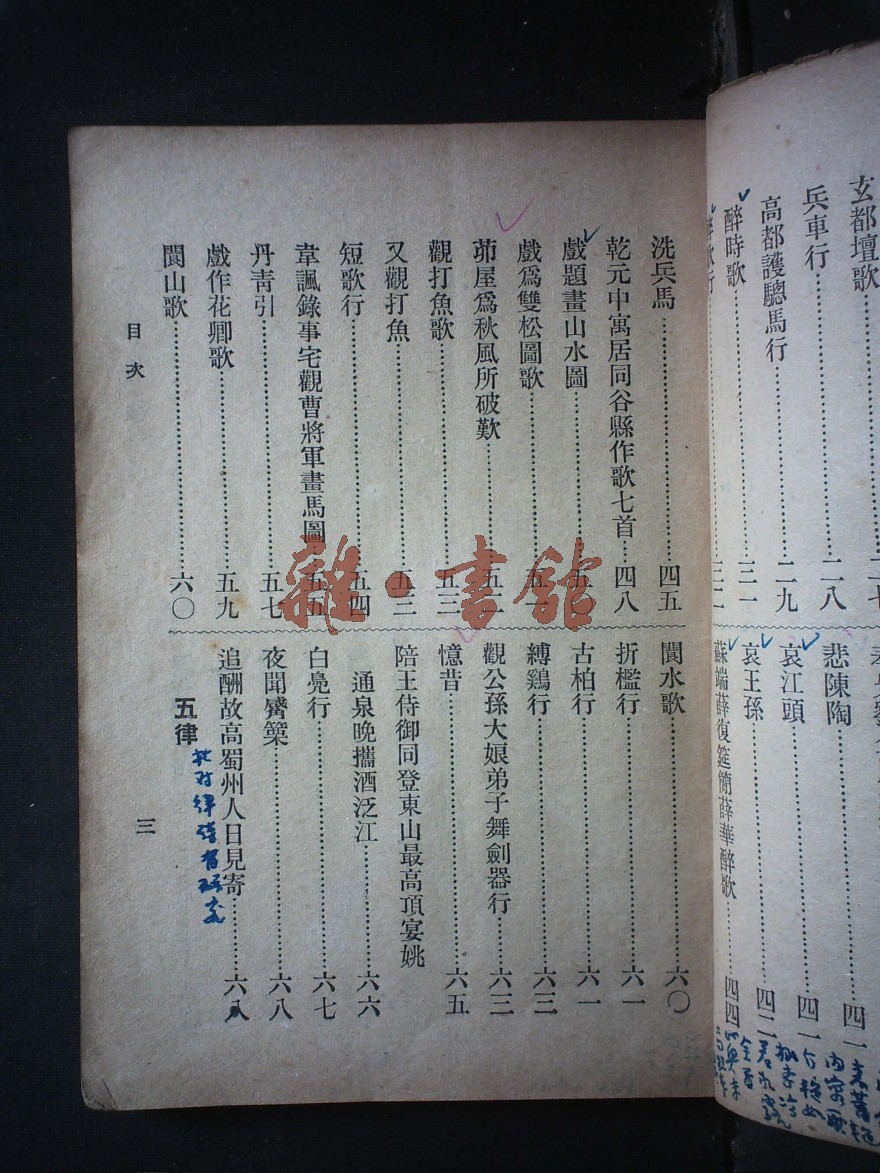 玄都壇歌……二七
兵車行……二八
高都護驄馬行……二九
醉時歌……三一
悲陳陶……四一
哀江頭……四一
哀王孫……四二
蘇端薛復筵簡薛華醉歌……四四
洗兵馬……四五
乾元中寓居同谷縣作歌七首……四八
戲題畫山水圖……五
戲爲雙松圖歌……五
茆屋爲秋風所破歎……五
觀打魚歌……五三
又觀打魚……五三
短歌行……五四
韋諷錄事宅觀曹將軍畫馬圖……五五
丹靑引……五七
戲作花卿歌……五九
閬山歌……六〇
閬水歌……六〇
折檻行……六一
古柏行……六一
縛鷄行……六三
觀公孫大娘弟子舞劍器行……六三
憶昔……六五
陪王侍御同登東山最高頂宴姚
通泉晚攜酒泛江……六六
白鳧行……六七
夜聞觱篥……六八
追酬故高蜀州人日見寄……六八
五律
目次
三
雜·書館